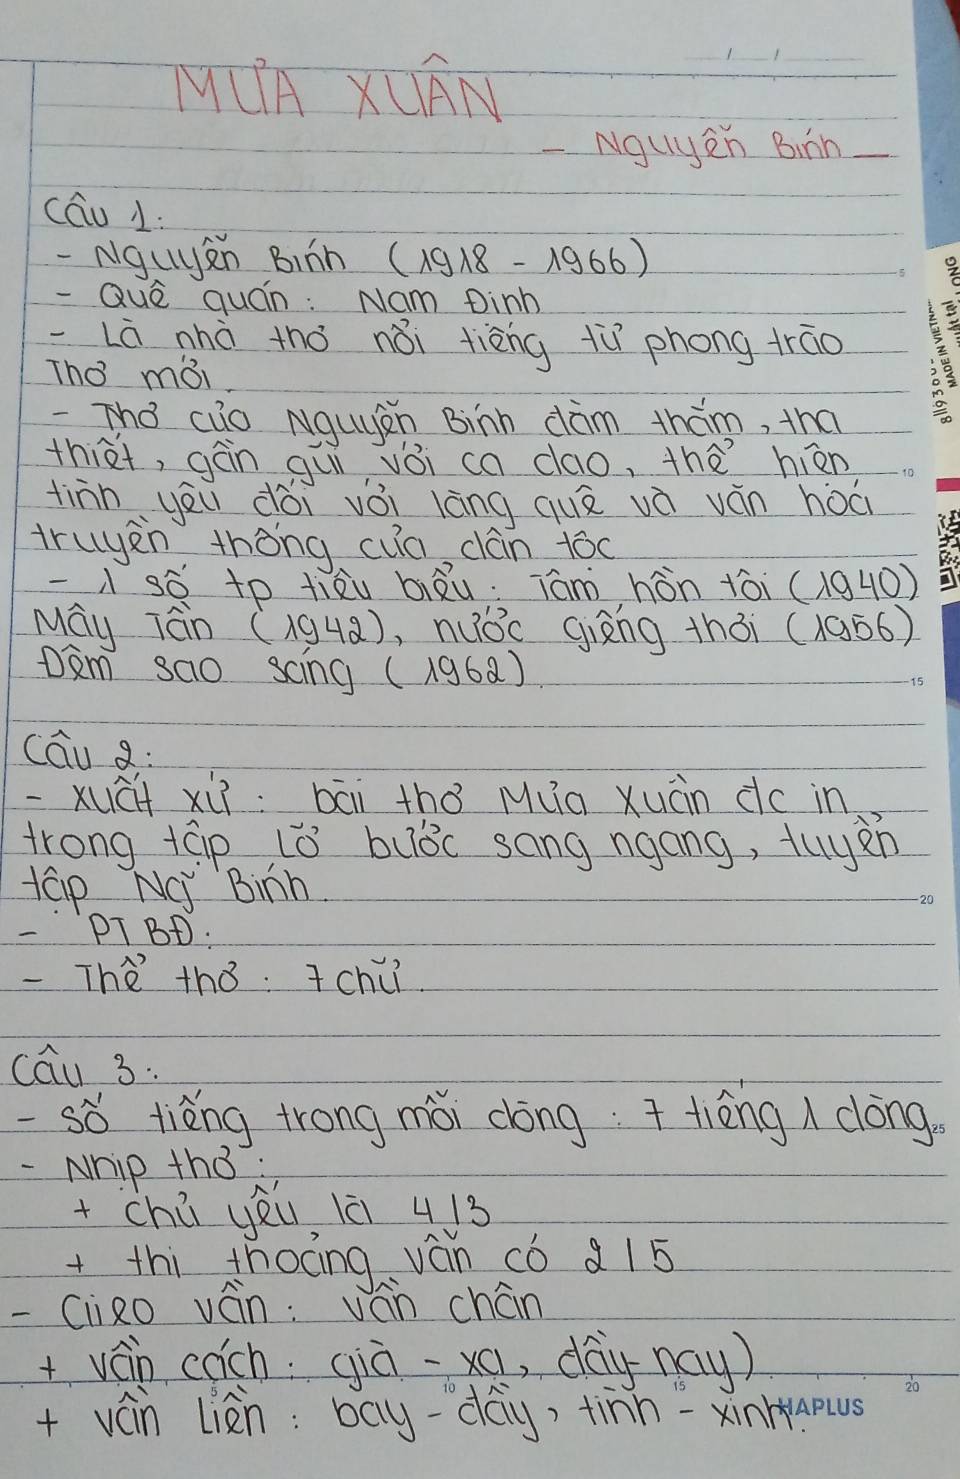 MƯA XUÂN
- Nguyễn Bính -
Câu 1:
- Nguyễn Bính (1918 - 1966)
- Quê quán: Nam Định
- Là nhà thơ nổi tiếng từ phong trào
Thơ mới.
- Thơ của Nguyễn Bính đằm thắm, tha
thiết, gần gũi với ca dao, thể hiện
tình yêu đối với làng quê và văn hoá
truyền thống của dân tộc
- 1 số tp tiêu biểu: Tâm hồn tôi (1940)
Mây Tần (1942), nước giếng thơi (1956)
Đêm sao sáng (1962).
Câu 2:
- Xuất xứ: bài thơ Mưa Xuân đc in
trong tập Lỡ bước sang ngang, tuyển
tập Ng~ Bính.
- PTBĐ:
- Thể thơ: 7 chữ.
Câu 3:
- số tiếng trong mỗi dòng: 7 tiếng 1 dòng.
- Nhịp thơ:
+ chủ yếu là 4/3
+ thi thoảng vẫn có 2/5
- Gieo vần: vần chân
+ vần cách: già - xa, dầy - nay)
+ vần liền: bay - dầy, tình - xinh.
5
10
15
20
25
5
10
15
20
HAPLUS
MADE IN VIETNAM
LONG